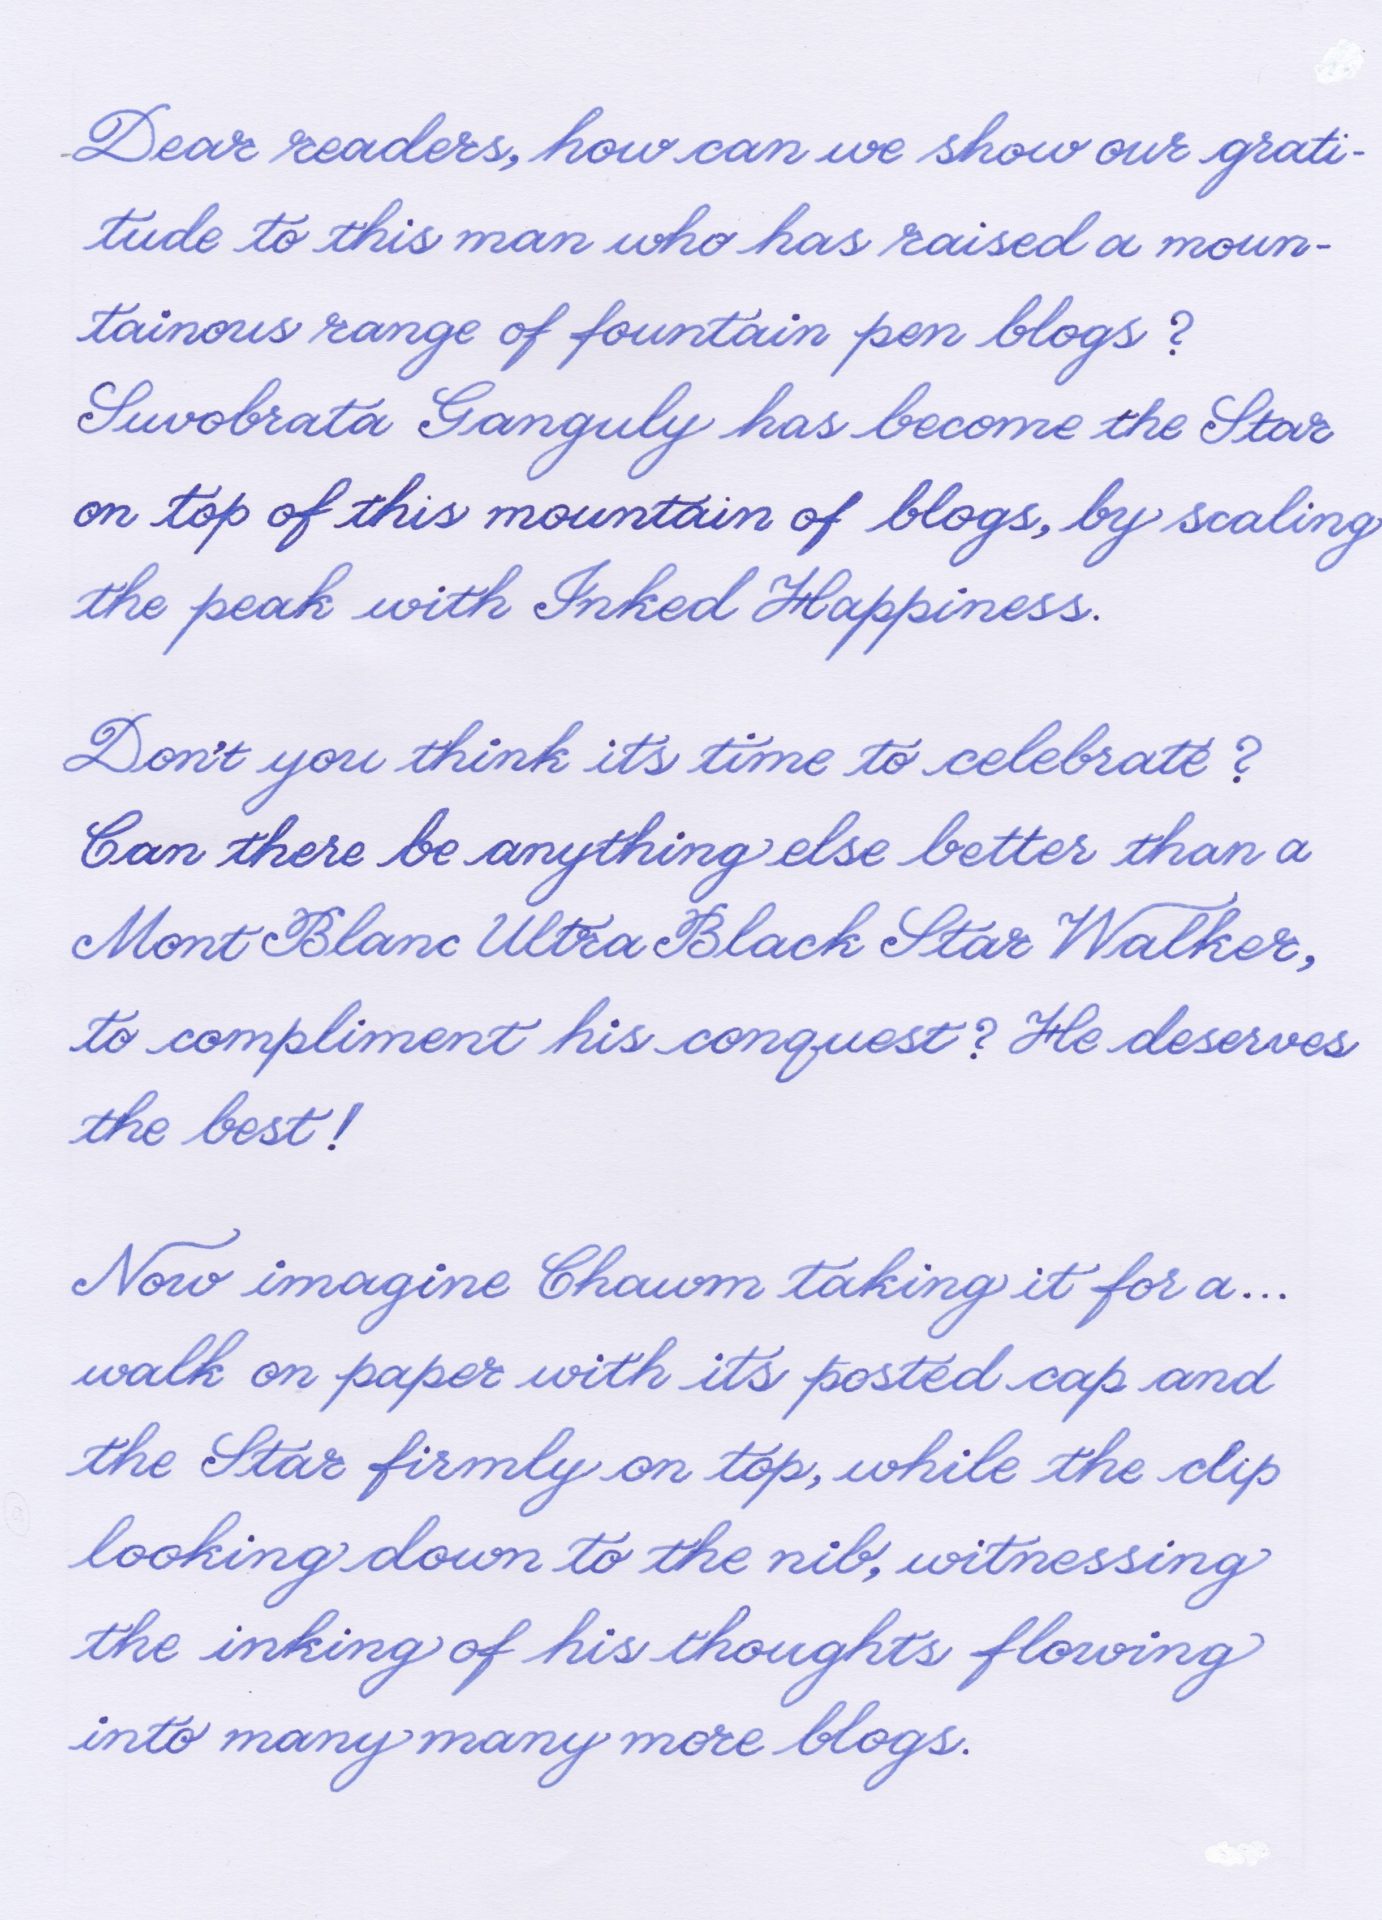 Dear readers, how can we show our grati-
tude to this man who has raised a moun-
tainous range of fountain pen blogs ?
Suvobrata Ganguly has become the Star
on top of this mountain of blogs, by scaling
the peak with Inked Happiness.
Don't you think its time to celebrate ?
Can there be anything else better than a
Mont Blanc Ultra Black Star Walker,
to compliment his conquest ? He deserves
the best !
Now imagine Chawm taking it for a...
walk on paper with its posted cap and
the Star firmly on top, while the clip
looking down to the nib, witnessing
the inking of his thoughts flowing
into many many more blogs.